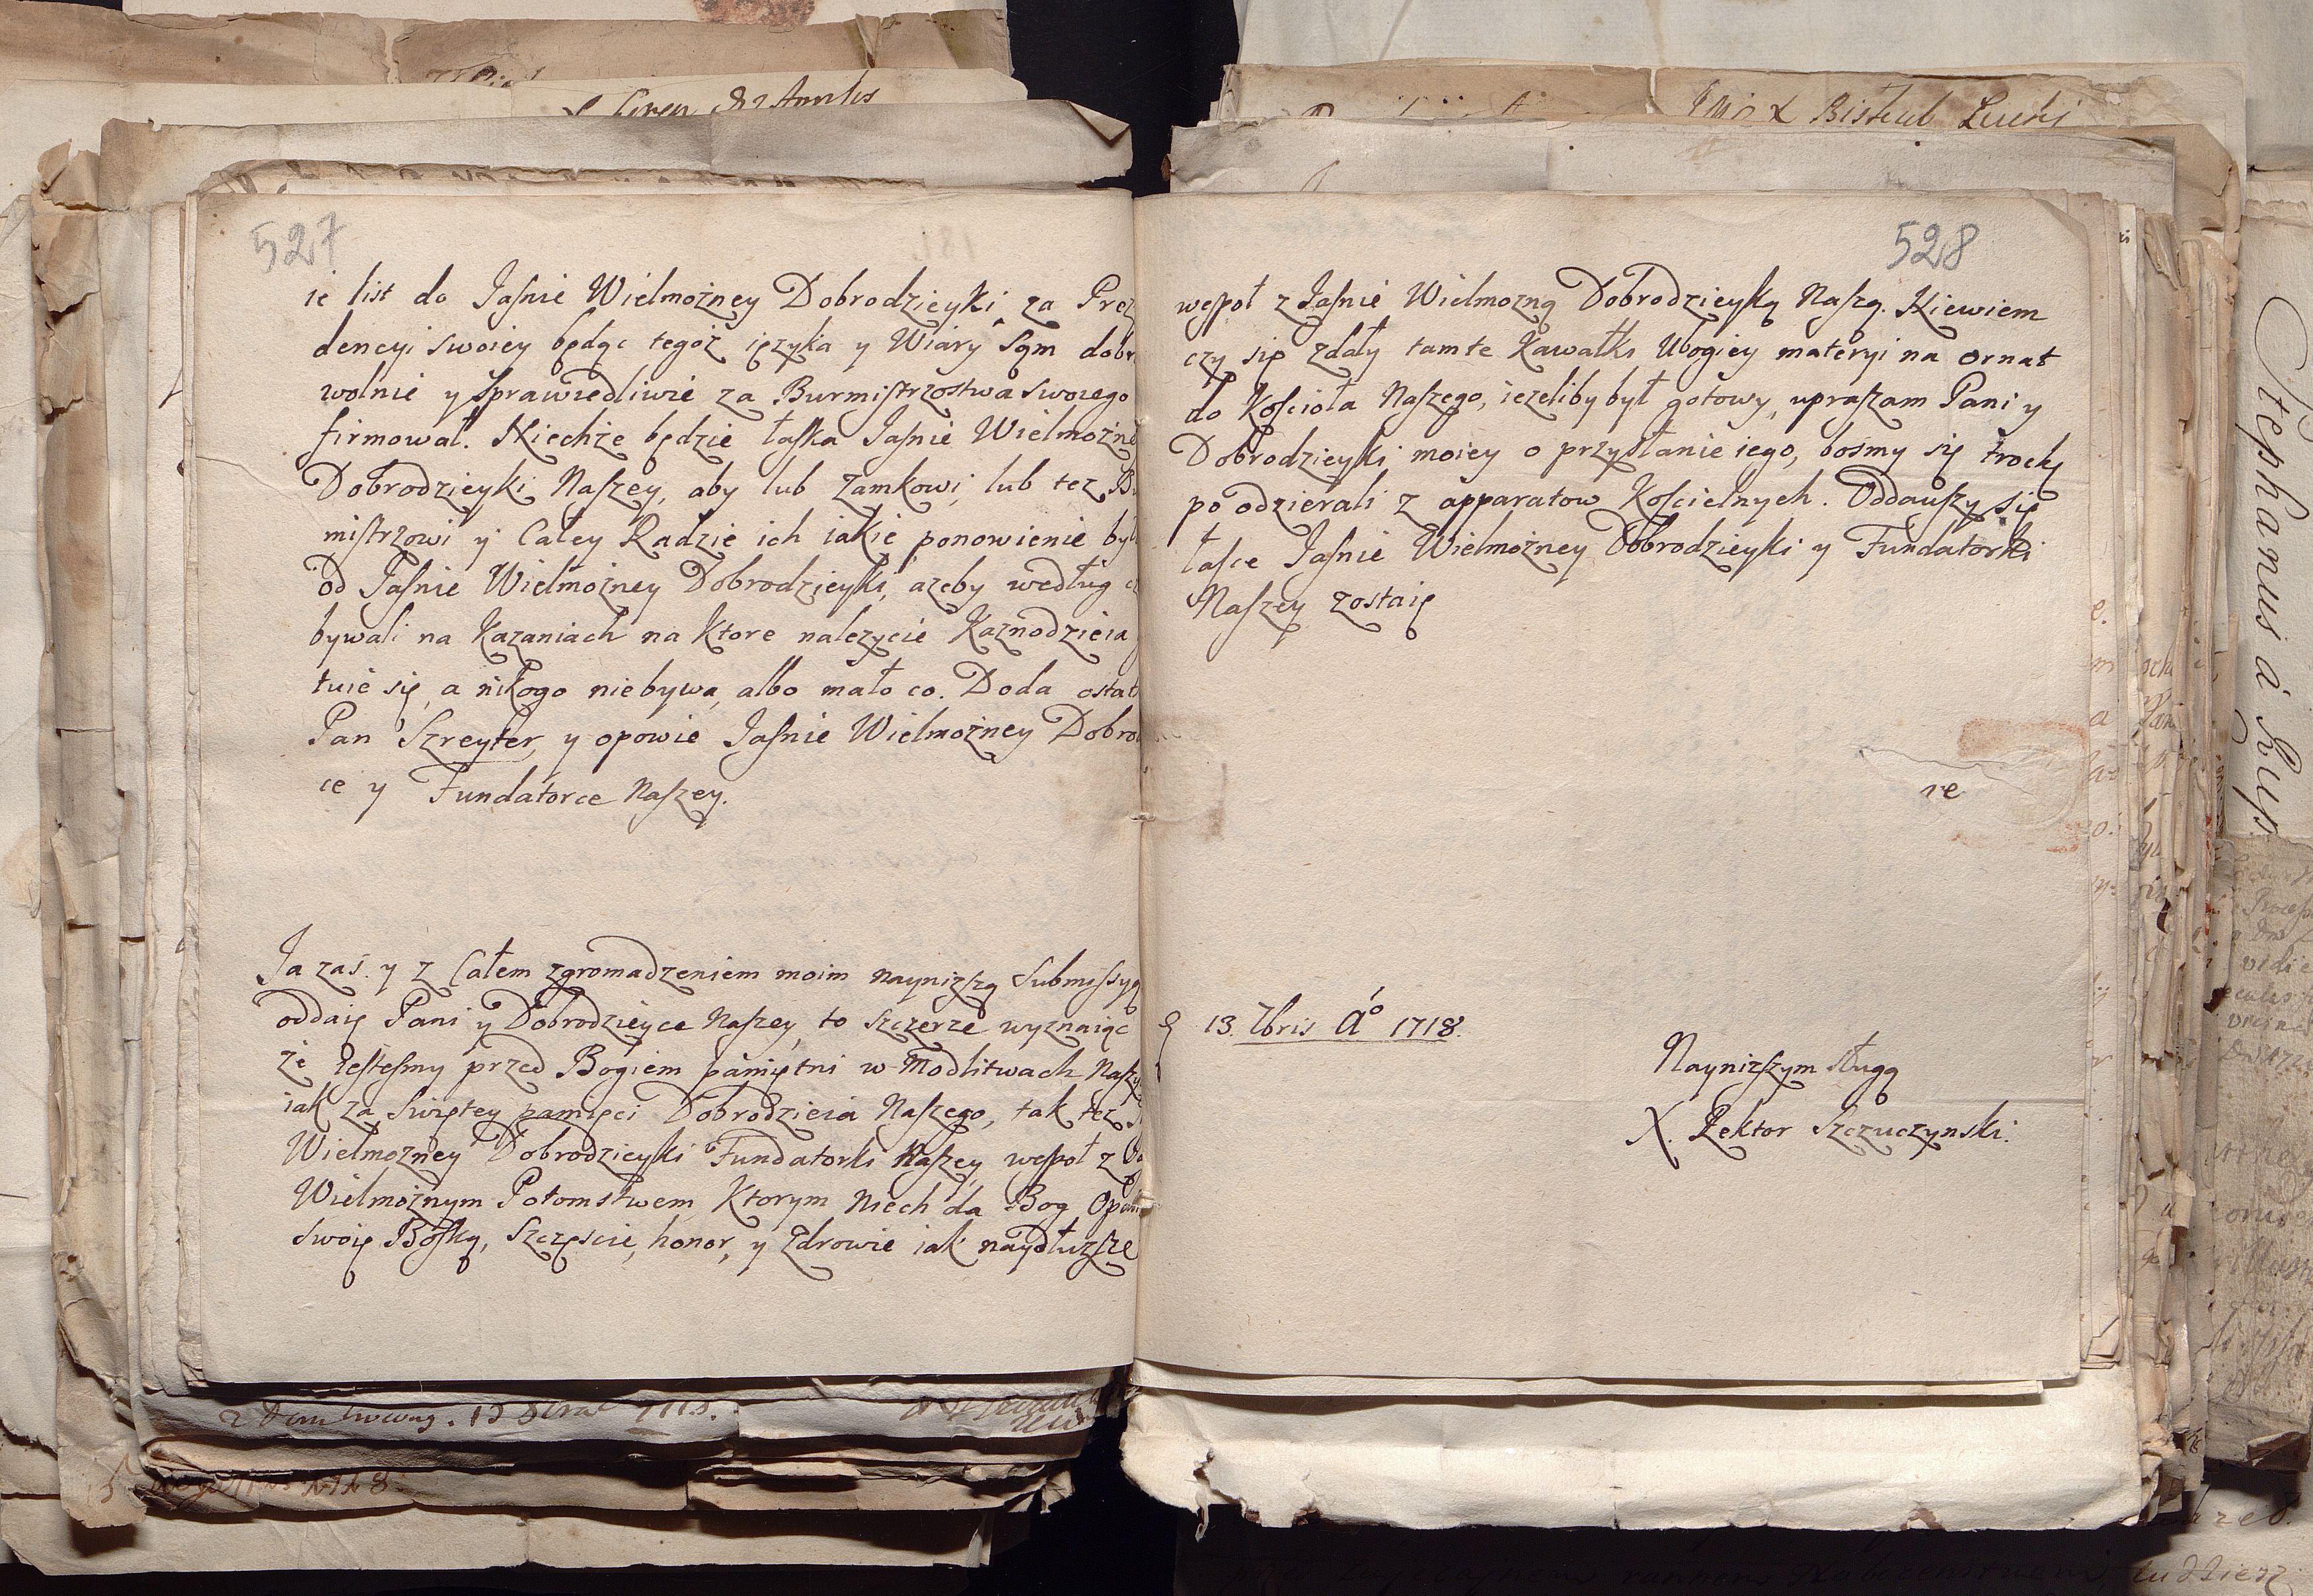 527
ie list do Jaſnie Wielmożney Dobrodzieyki, za Prez
dencyi swoiey będąc tegoż ięzyka y Wiary sąm dobr
wolnie y sprawiedliwie za Burmiſtrzostwa swoiego
firmował. Niechże będzie łaſka Jaſnie Wielmożne
Dobrodzieyki Naſzey, aby lub zamkowi, lub tez Bu
miſtrzowi y Całey Radzie ich iakie ponowienie był
od Jaſnie Wielmożney Dobrodzieyki, azeby według
bywali na Kazaniach na Ktore nalezycie Kaznodzieia
tuie się, a nikogo niebywa, albo mało co. Doda ostat
Pan Szreyter, y opowie Jaſnie Wielmożney Dobro
ce y Fundatorce Naſzey.
Ja zaś y z Całem zgromadzeniem moim nayniższą Submiſsyą
oddaię Pani y Dobrodzieyce Naſzey, to szczerze wyznaiąc
że Jeſteſmy przed Bogiem pamiętni w Modlitwach Naſzy
iak za swiętey pamięci Dobrodzieia Naſzego, tak tez
Wielmożney Dobrodzieyki Fundatorki Naſzey weſpoł z
Wielmożnym Potomstwem, Ktorym niech da Bog Opat
swoię Boſką, Szczęscie, honor, y Zdrowie iak naydłuższe
528
weſpoł z Jaſnie Wielmozną Dobrodzieyką Naſzą. Niewiem
czy się zdały tamte Kawałki Ubogiey materyi na ornat
do Koſcioła Naſzego, iezeliby był gotowy, upraſzam Pani y
Dobrodzieyki moiey o przysłanie iego, bosmy się trochę
po odzierali z apparatow Koſcielnych. Oddauſzy się
łaſce Jaſnie Wielmożney Dobrodzieyki y Fundatorki
Naſzey zostaię
re
13. 7bris Aº 1718.
Nayniżſzym sługą
X. Rektor Szczuczynski.
Biskub Lucki
Stephanus à